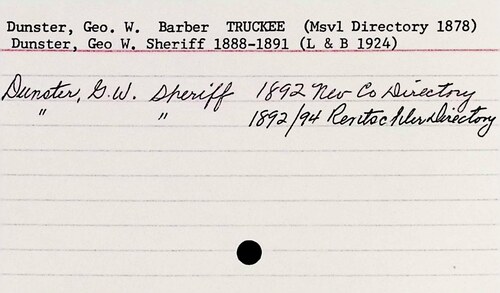 Dunster, Geo. W. Barber TRUCKEE (Msvl Directory 1878)
Dunster, Geo W. Sheriff 1888-1891 (L & B 1924)
Dunster, G.W. Sheriff 1892 Nev Co Directory
" " 1892/94 Rentschler Directory